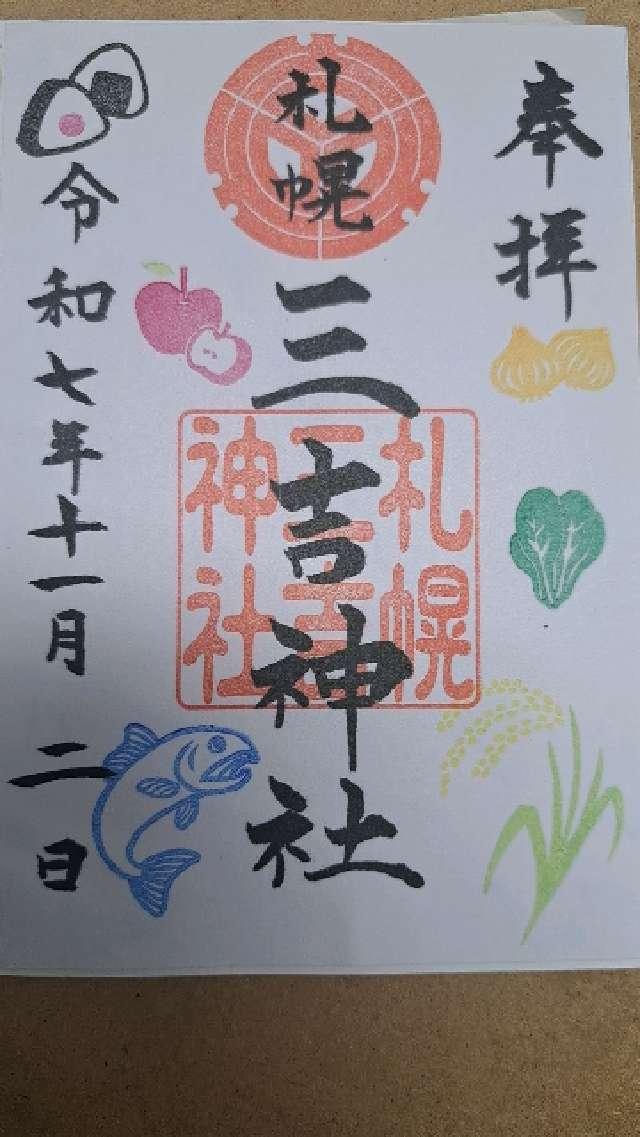 奉拝
札幌
三吉神社
札幌
三吉
神社
令和七年十一月
二日